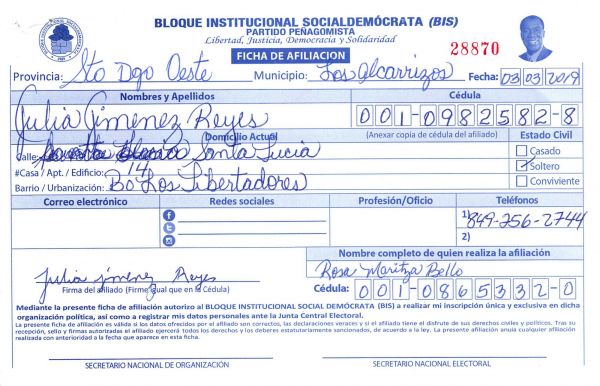 BLOQUE INSTITUCIONAL SOCIALDEMÓCRATA (BIS)
PARTIDO PEÑAGOMISTA
Libertad, Justicia, Democracia y Solidaridad
FICHA DE AFILIACION
28870
Provincia: Sto Dgo Oeste Municipio: Los Alcarrizos Fecha: 03 03 2019
Nombres y Apellidos Cédula
Julia Jimenez Reyes 001-0982582-8
Domicilio Actual (Anexar copia de cédula del afiliado) Estado Civil
Calle: Santa Lucia Casado
#Casa / Apt. / Edificio: 14 Soltero
Barrio / Urbanización: Bo Los Libertadores Conviviente
Correo electrónico Redes sociales Profesión/Oficio Teléfonos
1) 849-256-2744
2)
Nombre completo de quien realiza la afiliación
Julia jimenez Reyes Rosa Maritza Bello
Firma del afiliado (Firme igual que en la Cédula) Cédula: 001-0865332-0
Mediante la presente ficha de afiliación autorizo al BLOQUE INSTITUCIONAL SOCIAL DEMÓCRATA (BIS) a realizar mi inscripción única y exclusiva en dicha
organización política, así como a registrar mis datos personales ante la Junta Central Electoral.
La presente ficha de afiliación es válida si los datos ofrecidos por el afiliado son correctos, las declaraciones veraces y si el titular tiene el disfrute de sus derechos civiles y políticos. Tras su
recepción, sello y firmas autorizadas el afiliado ejercerá todos los derechos y los deberes estatutariamente sancionados, de acuerdo a la ley. La presente afiliación anula cualquier afiliación
realizada con anterioridad a la fecha que aparece en esta ficha.
SECRETARIO NACIONAL DE ORGANIZACIÓN SECRETARIO NACIONAL ELECTORAL